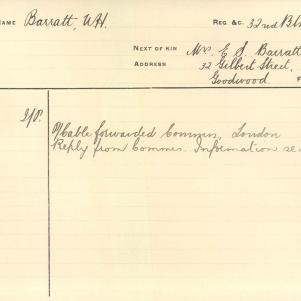 NAME Barratt, W.H. REG. &C. 32nd B
NEXT OF KIN Mrs. E. J. Barratt
ADDRESS 32 Gilbert Street,
Goodwood.
O/Cable forwarded Commrs, London
Reply from Commrs. Information re